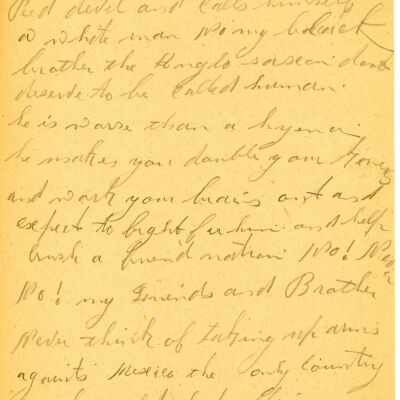 Red devil and calls himself
a white man No my black
brother the Anglo saxcan dont
deserve to be called human.
he is worse than a hyena
he makes you double your
and work your brains out and
expect to fight for him and help
crush a friend nation No! Never
No! my friends and Brother
Never think of taking up arms
againts Mexico the only Country